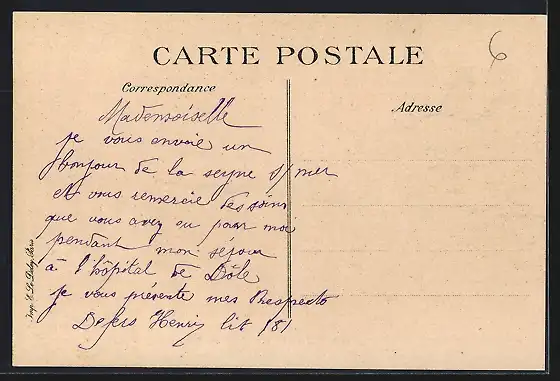 6
CARTE POSTALE
Correspondance
Adresse
Mademoiselle
je vous envoie un
bonjour de la seyne s/ mer
et vous remercie des soins
que vous avez eu pour moi
pendant mon séjour
à l'hôpital de Dôle
je vous présente mes Respects
Henry lit 181
Imp. E. Le Deley, Paris